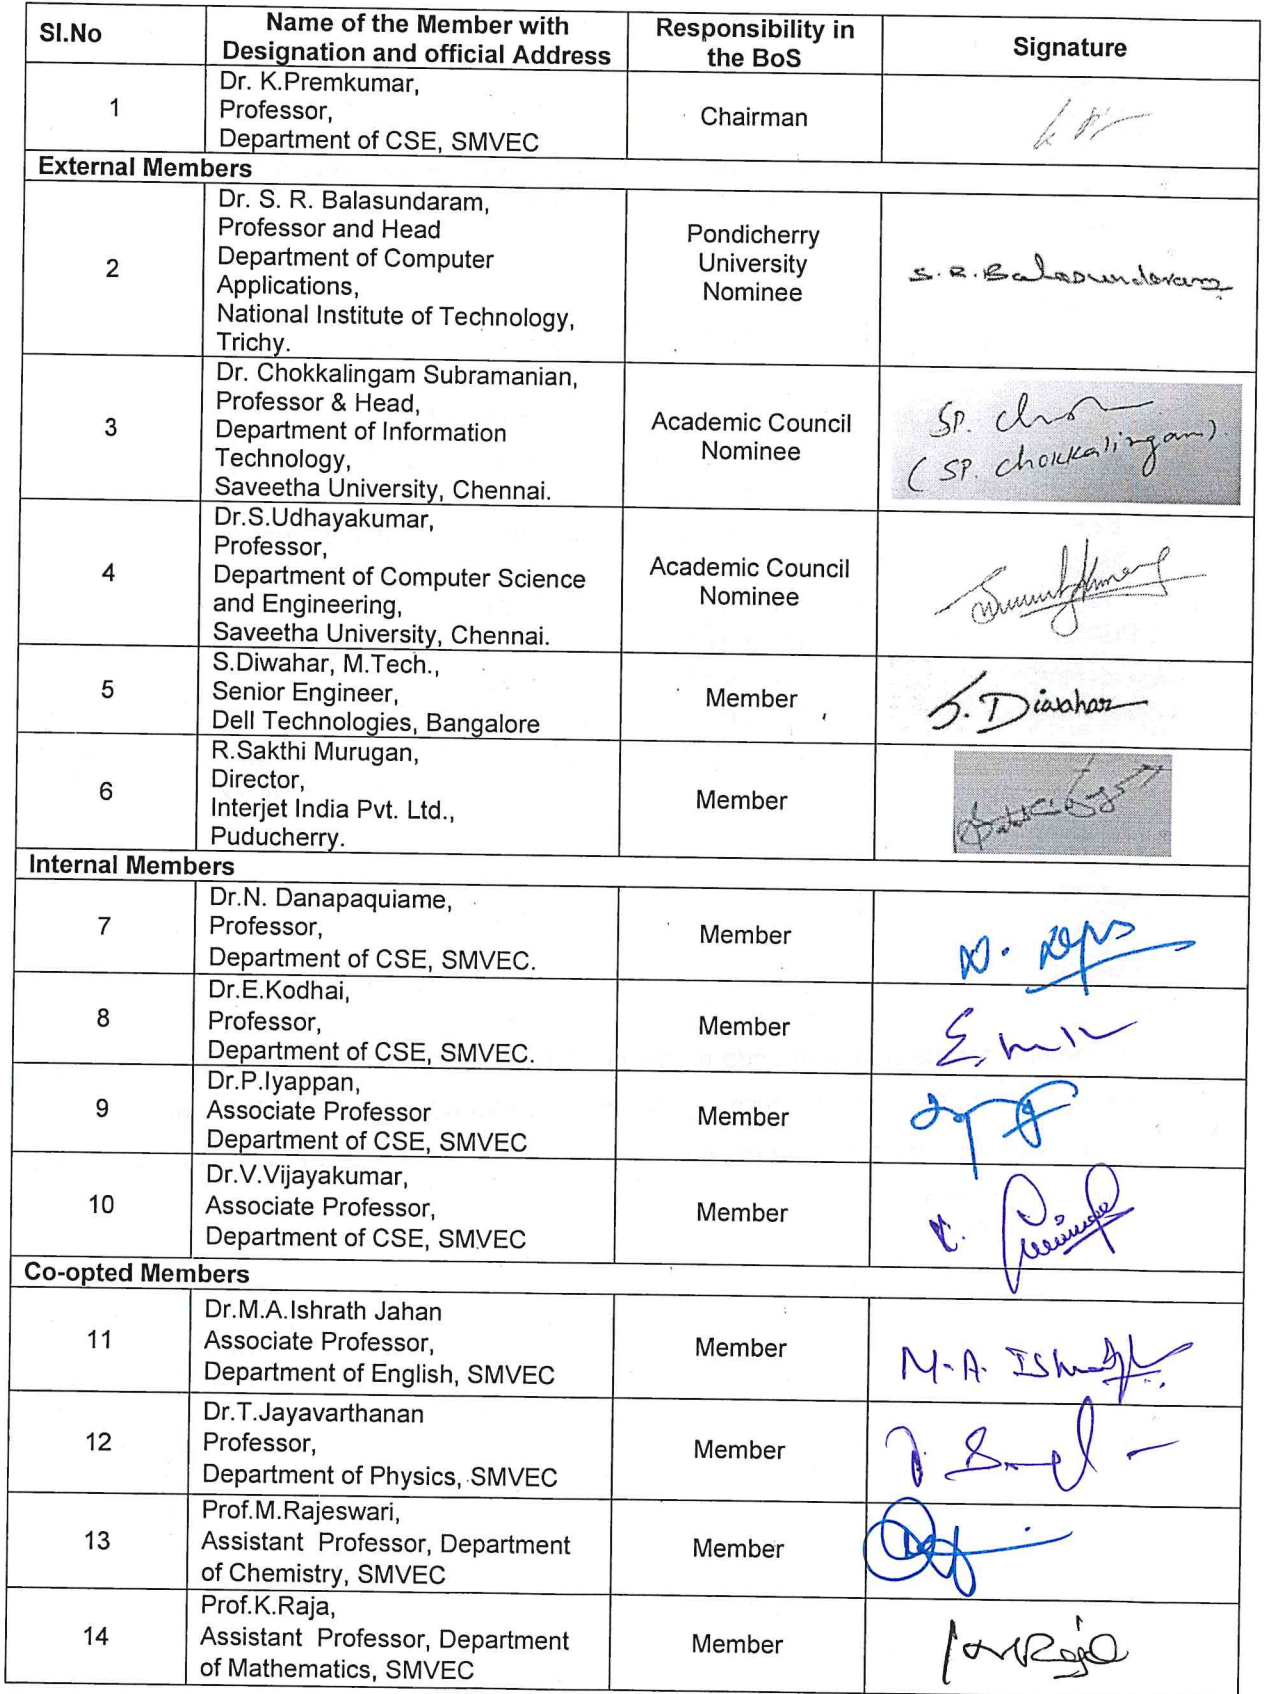 SI.No
Name of the Member with
Designation and official Address
Responsibility in
the BoS
Signature
1
Dr. K.Premkumar,
Professor,
Department of CSE, SMVEC
Chairman
External Members
2
Dr. S. R. Balasundaram,
Professor and Head
Department of Computer
Applications,
National Institute of Technology,
Trichy.
Pondicherry
University
Nominee
S. R. Balasundaram
3
Dr. Chokkalingam Subramanian,
Professor & Head,
Department of Information
Technology,
Saveetha University, Chennai.
Academic Council
Nominee
SP.
(SP. Chokkalingam)
4
Dr.S.Udhayakumar,
Professor,
Department of Computer Science
and Engineering,
Saveetha University, Chennai.
Academic Council
Nominee
5
S.Diwahar, M.Tech.,
Senior Engineer,
Dell Technologies, Bangalore
Member
S. Diwahar
6
R.Sakthi Murugan,
Director,
Interjet India Pvt. Ltd.,
Puducherry.
Member
Internal Members
7
Dr.N. Danapaquiame,
Professor,
Department of CSE, SMVEC.
Member
8
Dr.E.Kodhai,
Professor,
Department of CSE, SMVEC.
Member
9
Dr.P.Iyappan,
Associate Professor
Department of CSE, SMVEC
Member
10
Dr.V.Vijayakumar,
Associate Professor,
Department of CSE, SMVEC
Member
Co-opted Members
11
Dr.M.A.Ishrath Jahan
Associate Professor,
Department of English, SMVEC
Member
M.A.
12
Dr.T.Jayavarthanan
Professor,
Department of Physics, SMVEC
Member
13
Prof.M.Rajeswari,
Assistant Professor, Department
of Chemistry, SMVEC
Member
14
Prof.K.Raja,
Assistant Professor, Department
of Mathematics, SMVEC
Member